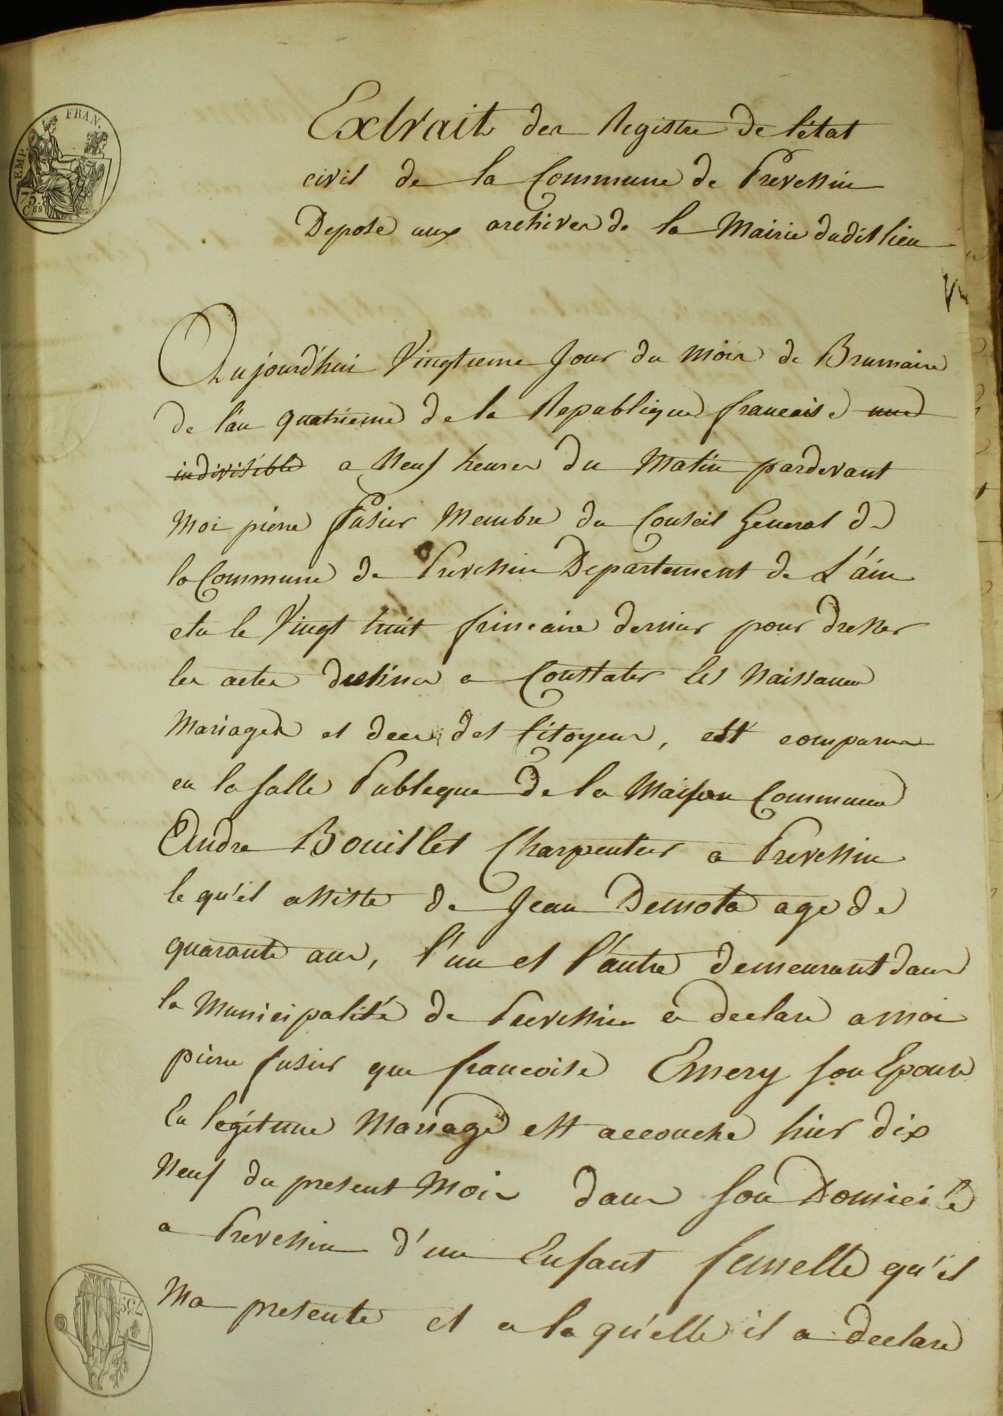 EMP. FRAN.
75 Ces
Extrait des Registre de l'état
civil de la Commune de Prevessin
Deposé aux archives de la Mairie dudit lieu
Aujourd'hui Vingtieme Jour du mois de Brumaire
de l'an quatrieme de la Republique francaise une
indivisible a Neuf heures du Matin pardevant
Moi pierre fusier Membre du Conseil General de
la Commune de Prevessin Departement de L'ain
elu le Vingt huit frimaire dernier pour dresser
les actes destines a Constater les Naissances
Mariages et deces des Citoyens, est comparu
en la salle Publeque de la Maison Commune
Andre Bouillet Charpentier a Prevessin
lequ'el assisté de Jean Demota age de
quarante ans, l'un et l'autre demeurant dans
la Municipalité de Prevessin a declare a moi
pierre fusier que francoise Emery son Epouse
En legitime Mariage est accouche hier dix
Neuf du present Mois dans son Domicile
a Prevessin d'un Enfant femelle qu'il
Ma presenté et a laqu'elle il a declare